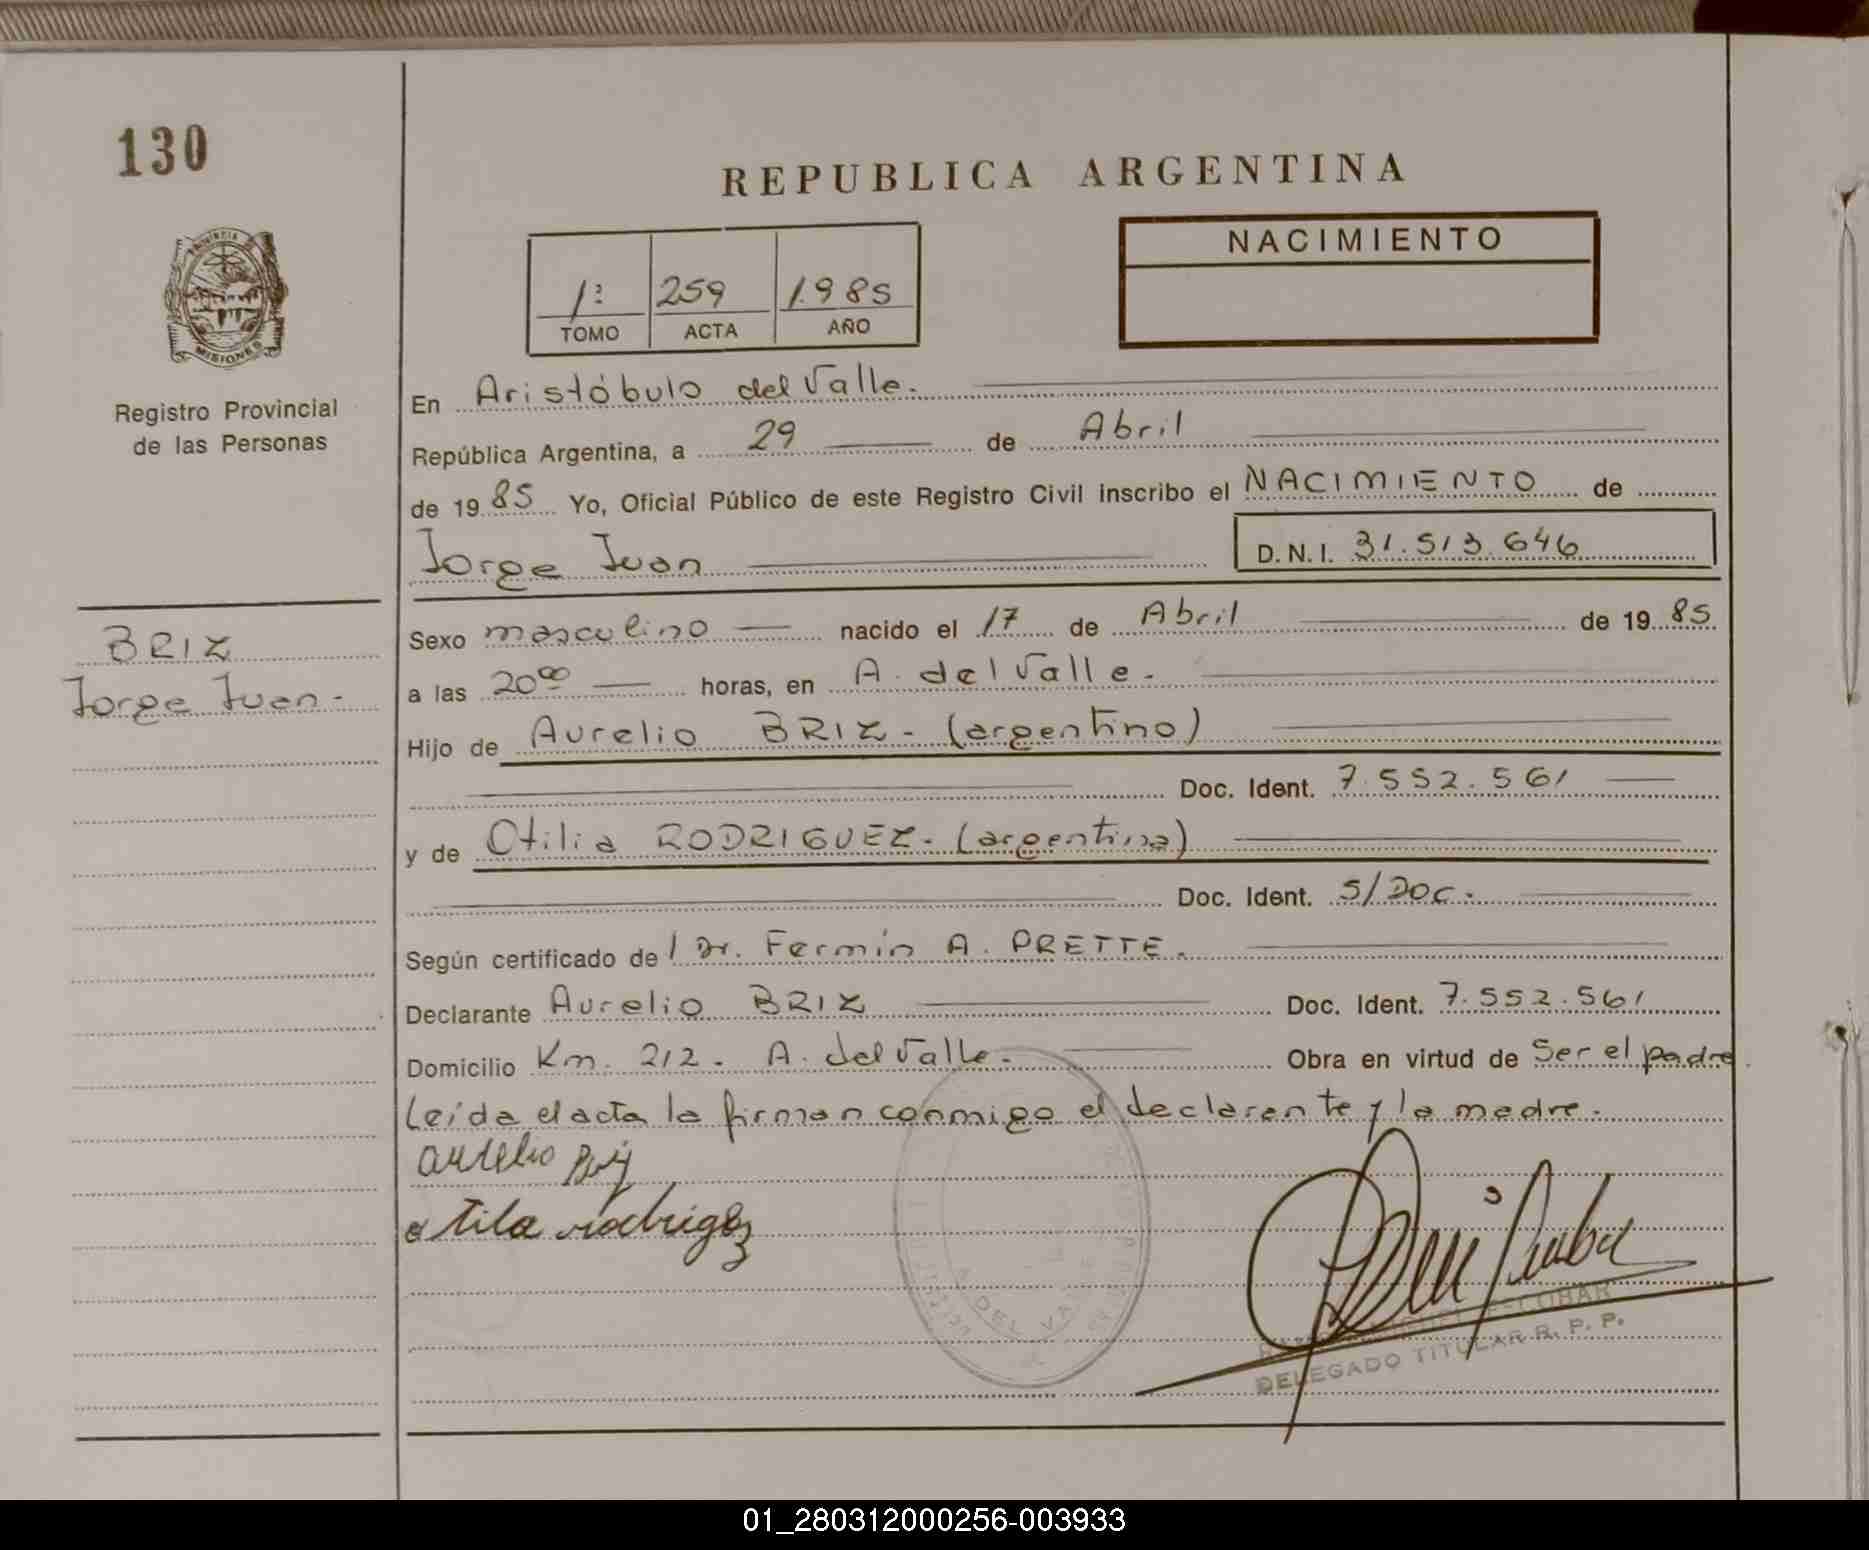 130
REPUBLICA ARGENTINA
NACIMIENTO
1º 259 1985
TOMO ACTA AÑO
PROVINCIA DE
MISIONES
Registro Provincial
de las Personas
En Aristóbulo del Valle.
República Argentina, a 29 de Abril
de 1985 Yo, Oficial Público de este Registro Civil inscribo el NACIMIENTO de
Jorge Juan D.N.I. 31.513.646
BRIZ
Jorge Juan -
Sexo masculino nacido el 17 de Abril de 1985
a las 20⁰⁰ horas, en A. del Valle.
Hijo de Aurelio BRIZ - (argentino)
Doc. Ident. 7.552.561
y de Otilia RODRIGUEZ - (argentina)
Doc. Ident. S/Doc.
Según certificado del Dr. Fermín A. PRETTE.
Declarante Aurelio BRIZ Doc. Ident. 7.552.561
Domicilio Km. 212 - A. del Valle. Obra en virtud de Ser el padre.
Leída el acta la firman conmigo el declarante y la madre.
aurelio
otila rodriguez
A. DEL VALLE
ESCOBAR
DELEGADO TITULAR R. P. P.
01_280312000256-003933